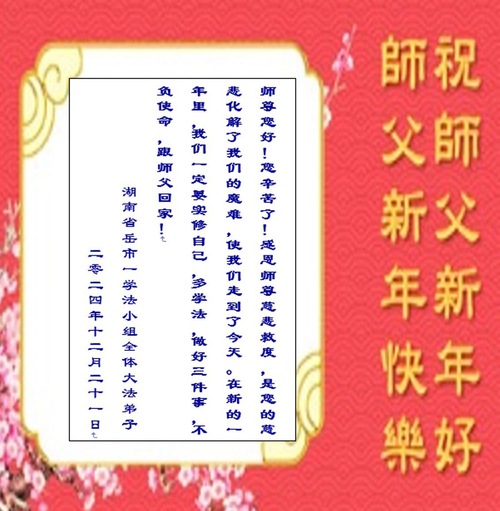 祝師父新年好
師父新年快樂
师尊您好！您辛苦了！感恩师尊慈悲救度，是您的慈
悲化解了我们的魔难，使我们走到了今天。在新的一
年里，我们一定要实修自己，多学法，做好三件事，不
负使命，跟师父回家！
湖南省岳市一学法小组全体大法弟子
二零二四年十二月二十一日